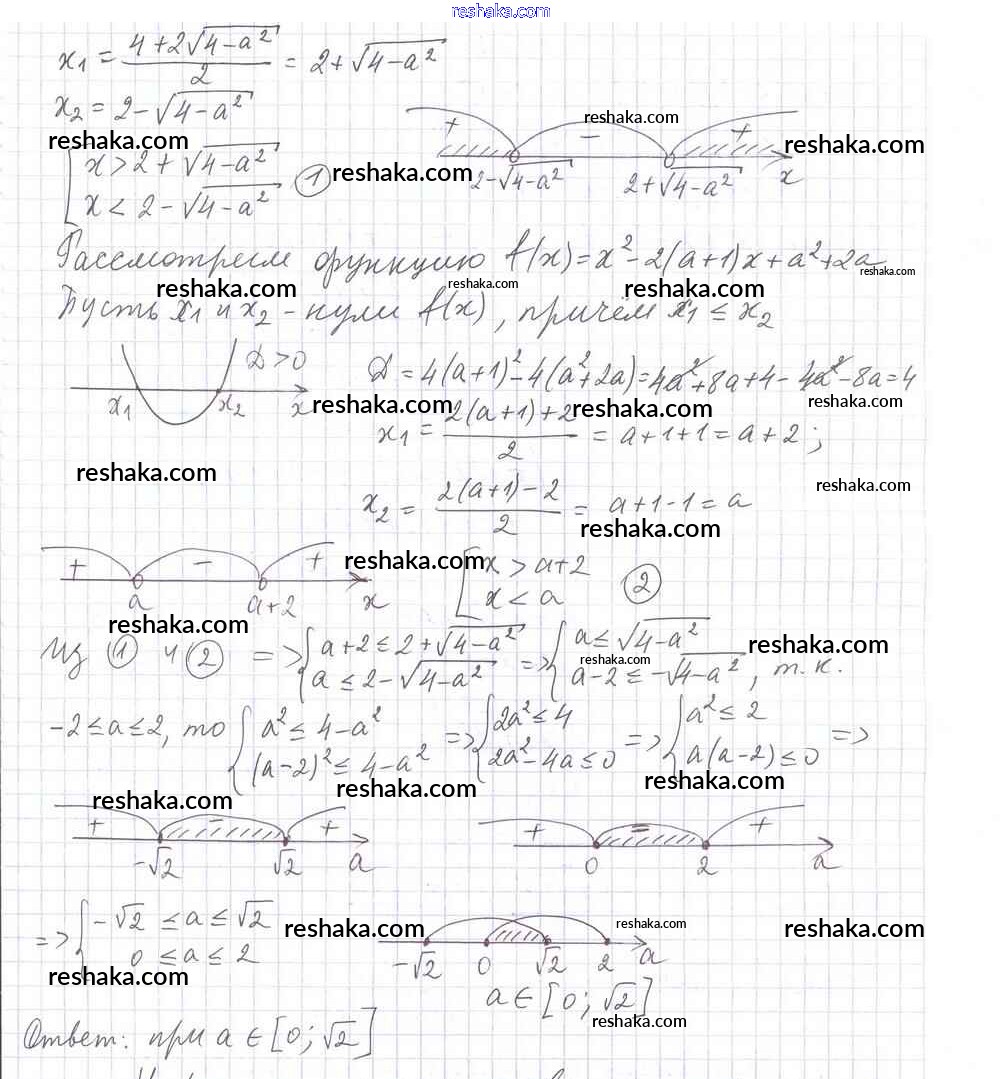 reshaka.com
x₁ = (4+2√(4-a²))/2 = 2+√(4-a²)
x₂ = 2-√(4-a²)
reshaka.com
+ - +
reshaka.com
reshaka.com
[x > 2+√(4-a²)
x < 2-√(4-a²) ①
reshaka.com
2-√(4-a²) 2+√(4-a²) x
Рассмотрим функцию f(x)=x²-2(a+1)x+a²+2a
reshaka.com
reshaka.com reshaka.com reshaka.com
Пусть x₁ и x₂ - нули f(x), причём x₁ ≤ x₂
D>0
x₁ x₂ x
D = 4(a+1)²-4(a²+2a)=4a²+8a+4-4a²-8a=4
reshaka.com reshaka.com reshaka.com
x₁ = (2(a+1)+2)/2 = a+1+1=a+2;
reshaka.com
reshaka.com
x₂ = (2(a+1)-2)/2 = a+1-1=a
reshaka.com
+ - +
a a+2 x
reshaka.com
[x > a+2
x < a ②
reshaka.com
Из ① и ② => {a+2 ≤ 2+√(4-a²)
a ≤ 2-√(4-a²) => {a ≤ √(4-a²)
a-2 ≤ -√(4-a²), т.к.
reshaka.com reshaka.com
-2 ≤ a ≤ 2, то {a² ≤ 4-a²
(a-2)² ≤ 4-a² => {2a² ≤ 4
2a²-4a ≤ 0 => {a² ≤ 2
a(a-2) ≤ 0 =>
reshaka.com reshaka.com reshaka.com
+ - +
-√2 √2 a
+ = +
0 2 a
=> {-√2 ≤ a ≤ √2
0 ≤ a ≤ 2
reshaka.com reshaka.com reshaka.com
-√2 0 √2 2 a
reshaka.com
a ∈ [0; √2]
reshaka.com
Ответ: при a ∈ [0; √2]